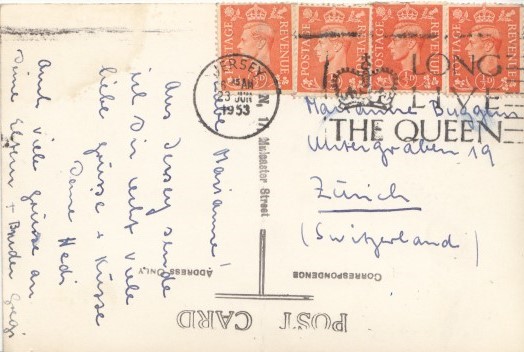 POSTAGE REVENUE
POSTAGE REVENUE
POSTAGE REVENUE
POSTAGE REVENUE
JERSEY
JUN
1953
LONG
LIVE
THE QUEEN
Liebe Marianne!
Aus Jersey sende
ich Dir recht viele
liebe Grüsse + Küsse
Deine Hedi
Auch viele Grüsse an
Deine Eltern + Bruder
Marianne
Untergraben 19
Zürich
(Switzerland)
Mulcaster Street
CORRESPONDENCE
ADDRESS ONLY
POST CARD